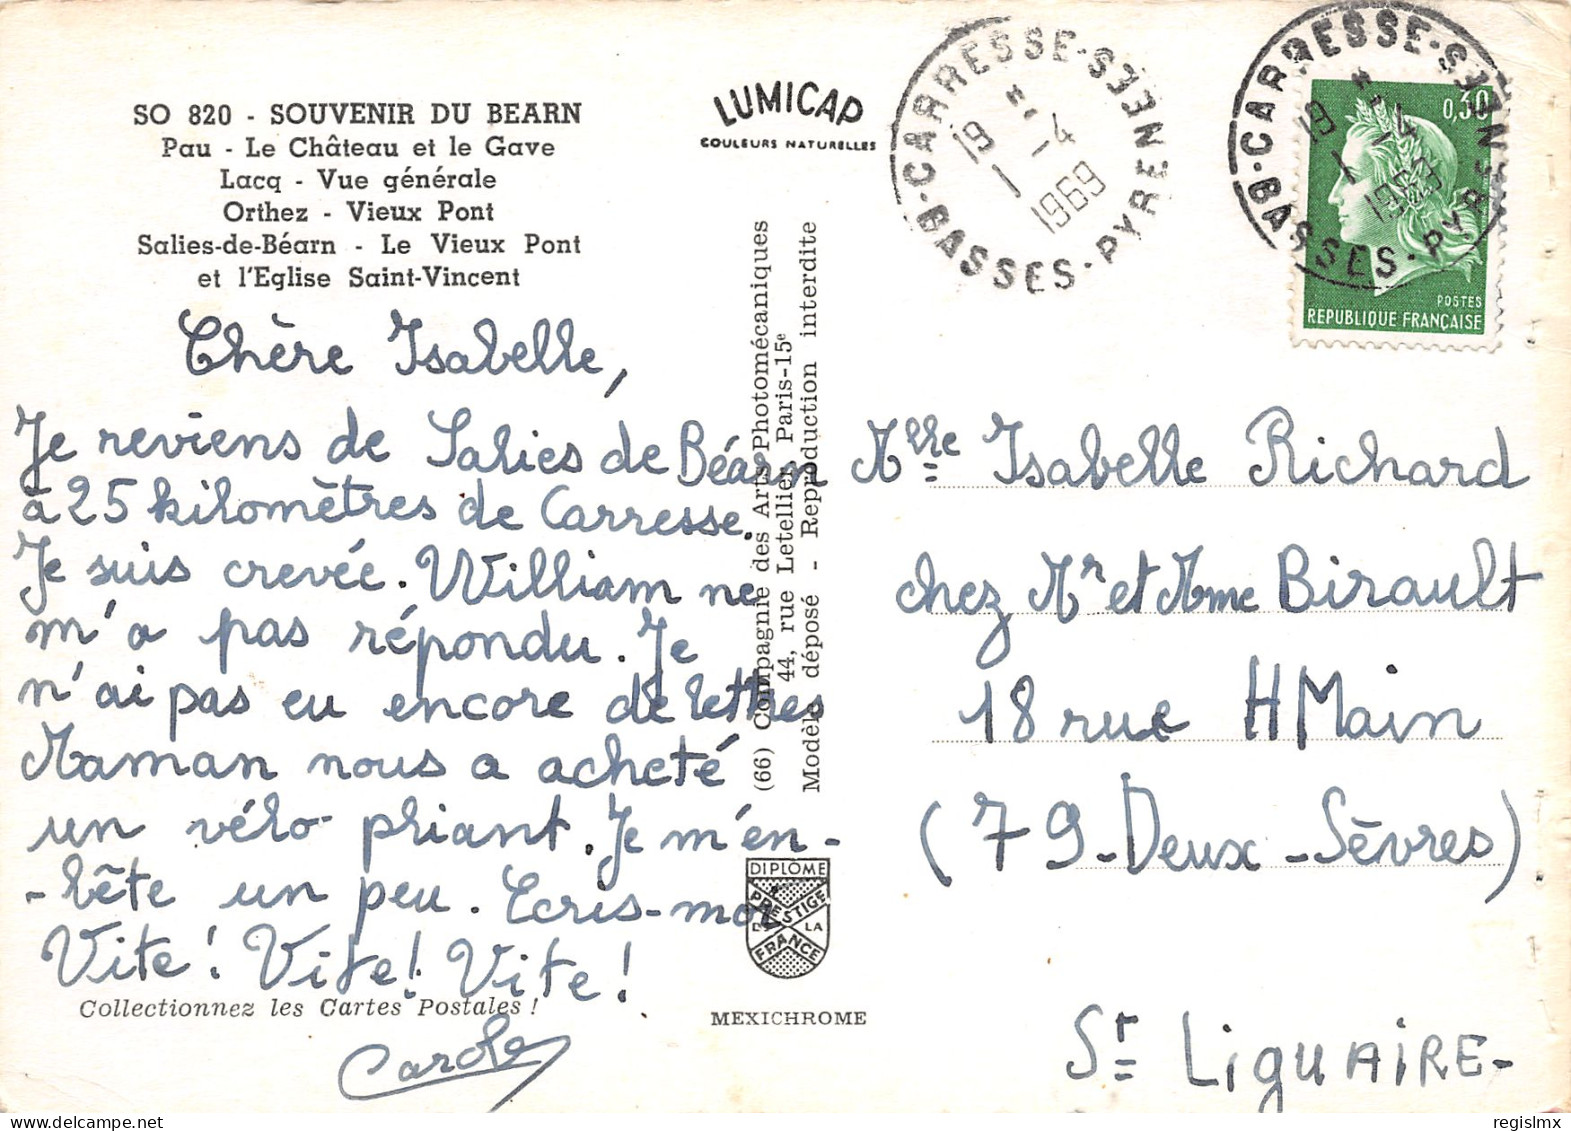 SO 820 - SOUVENIR DU BEARN
Pau - Le Château et le Gave
Lacq - Vue générale
Orthez - Vieux Pont
Salies-de-Béarn - Le Vieux Pont
et l'Eglise Saint-Vincent
Chère Isabelle,
Je reviens de Salies de Béarn
à 25 kilomètres de Carresse.
Je suis crevée. William ne
m'a pas répondu. Je
n'ai pas eu encore de lettres
Maman nous a acheté
un vélo pliant. Je m'en-
-bête un peu. Ecris-moi
Vite! Vite! Vite!
Collectionnez les Cartes Postales !
Carole
LUMICAP
COULEURS NATURELLES
(66) Compagnie des Arts Photomécaniques
44, rue Letellier, Paris-15e
Modèle déposé - Reproduction interdite
DIPLOME
PRESTIGE
DE LA
FRANCE
MEXICHROME
CARRESSE-SEES
B-BASSES-PYRENEES
19 H. 4
1 1
1969
CARRESSE-
B-BASSES-PYRENEES
19 H. 4
1 1
1969
0,30
POSTES
REPUBLIQUE FRANÇAISE
Mlle Isabelle Richard
chez Mr et Mme Birault
18 rue H Main
(79-Deux-Sèvres)
St LIGUAIRE-
regislmx